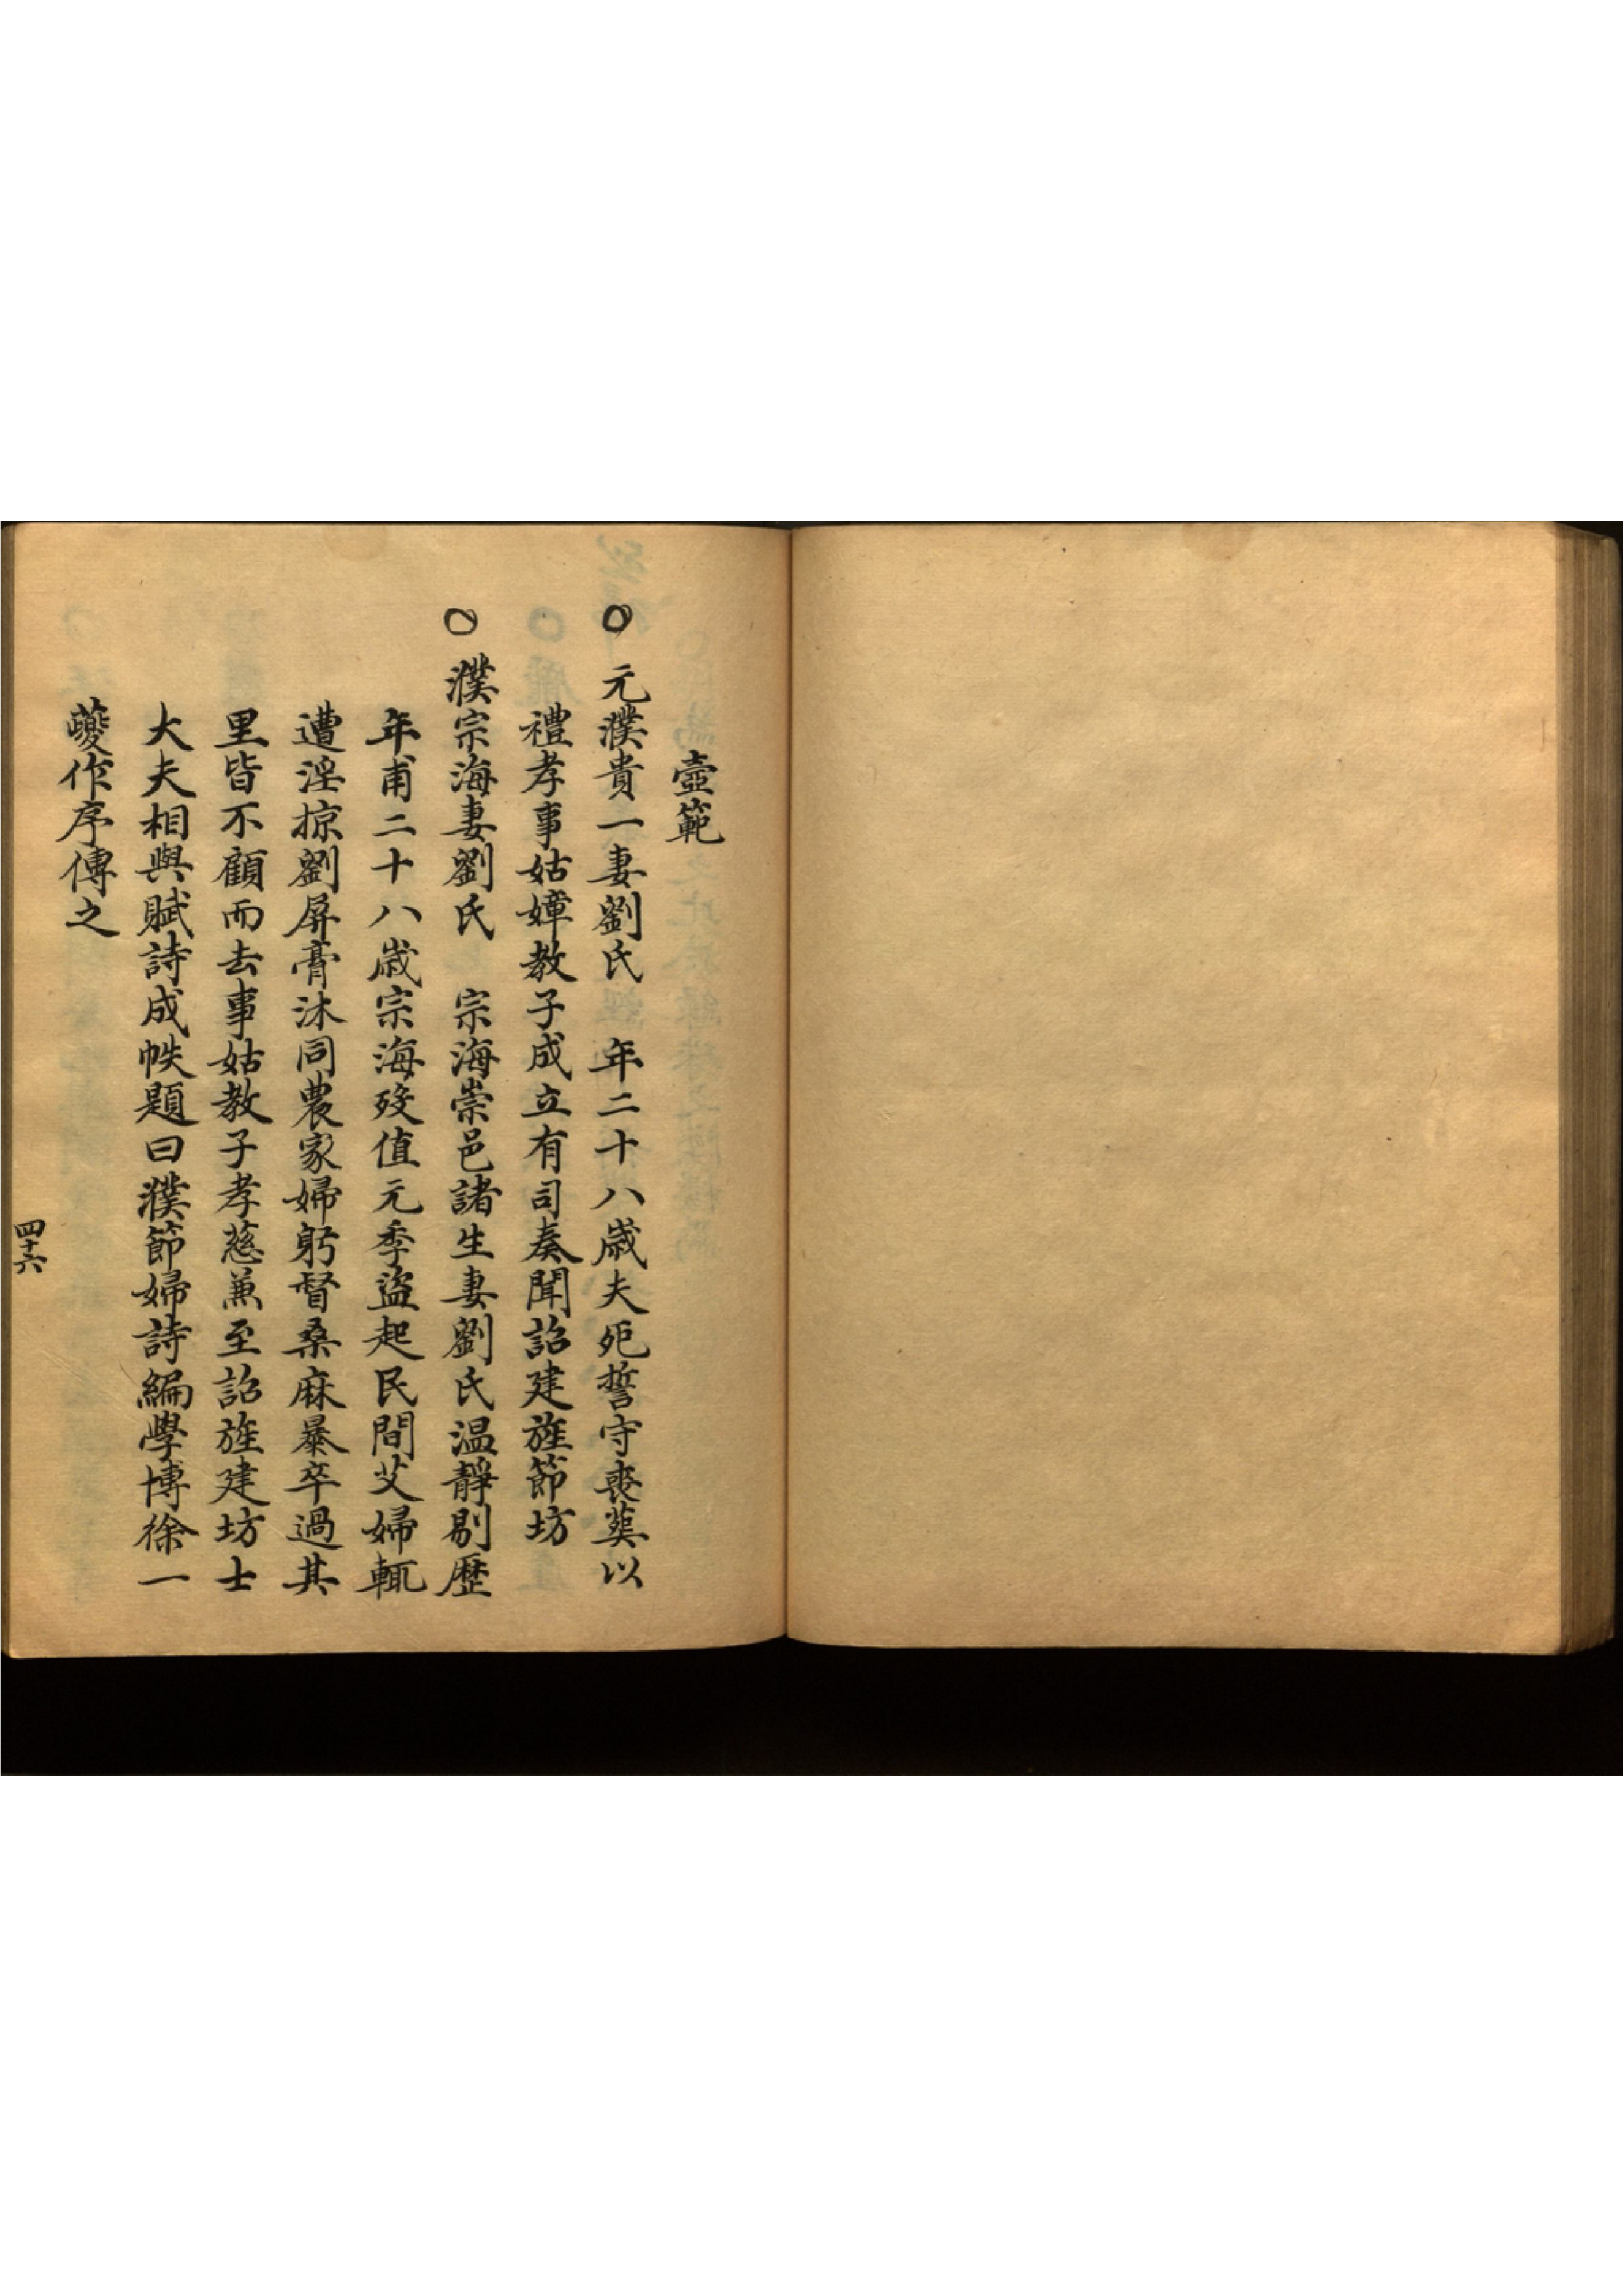 壼範
○元濮貴一妻劉氏 年二十八歲夫死誓守喪葬以
禮孝事姑嫜教子成立有司奏聞詔建旌節坊
○濮宗海妻劉氏 宗海崇邑諸生妻劉氏温靜剔歷
年甫二十八歲宗海歿值元季盜起民間艾婦輒
遭淫掠劉屏膏沐同農家婦躬督桑麻暴卒過其
里皆不顧而去事姑教子孝慈兼至詔旌建坊士
大夫相與賦詩成帙題曰濮節婦詩編學博徐一
夔作序傳之
四十六